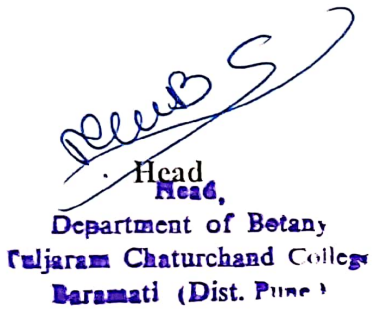 Head
Head,
Department of Botany
Tuljaram Chaturchand College
Baramati (Dist. Pune)